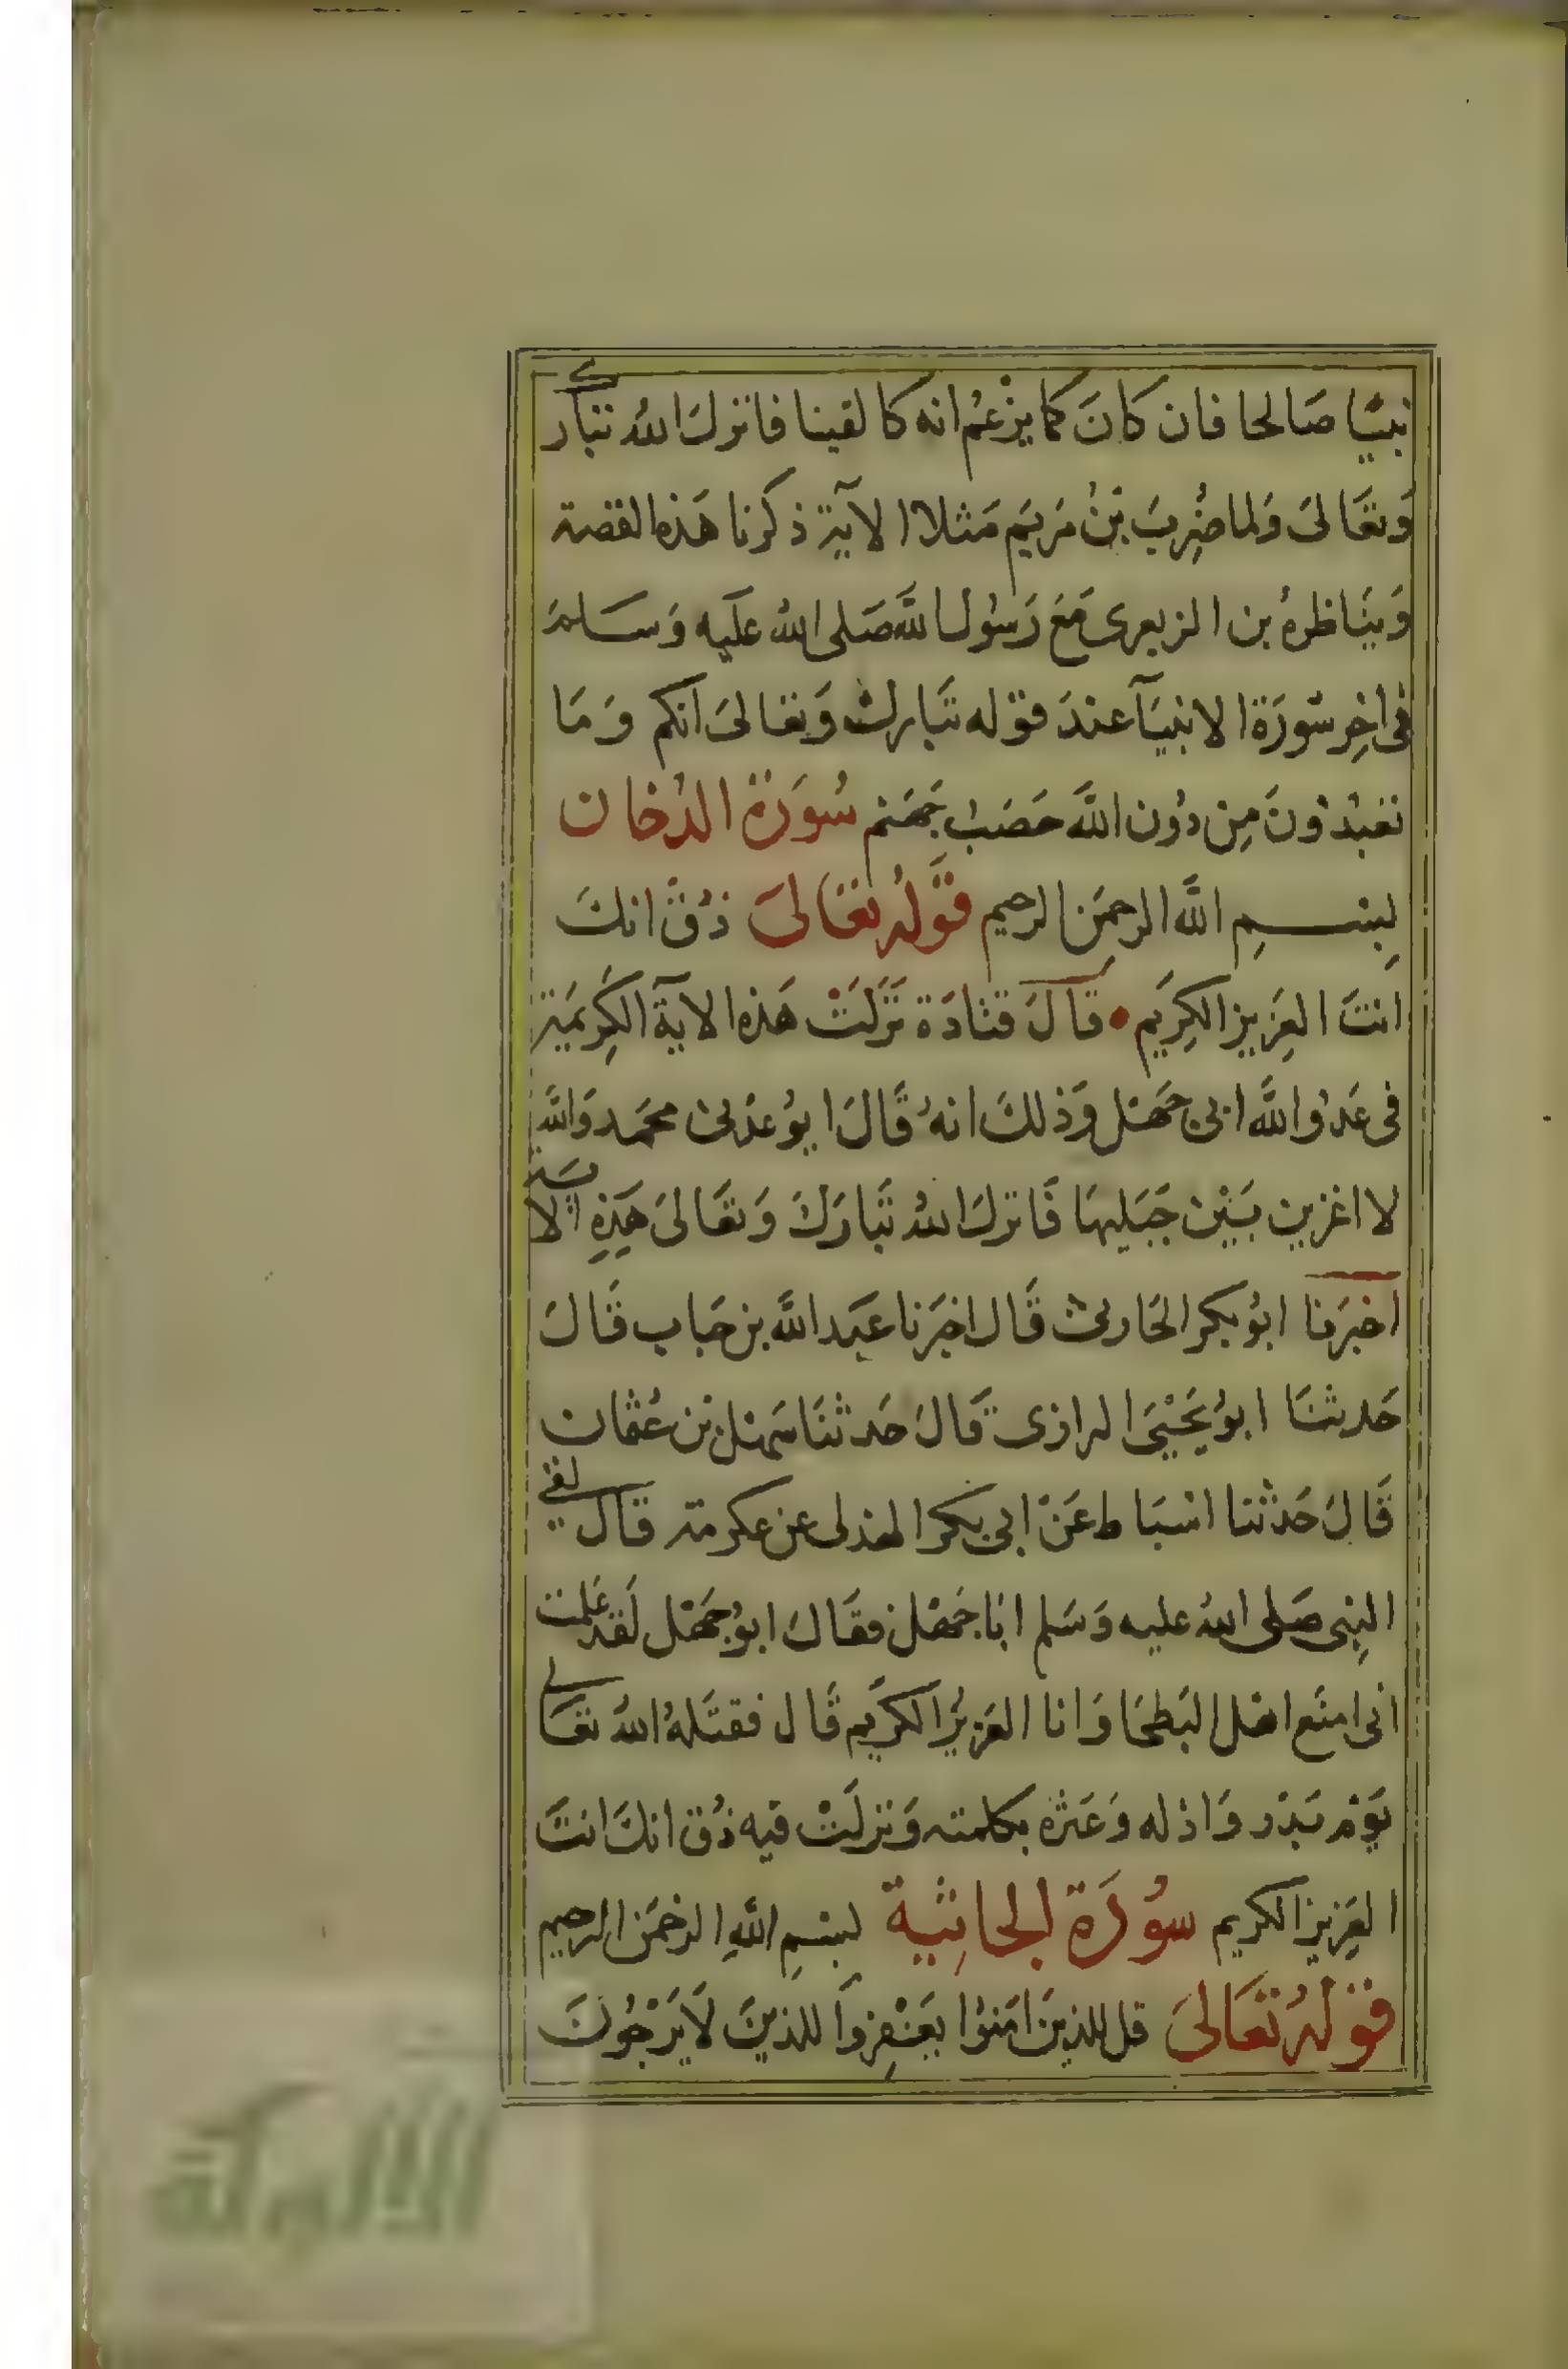 نبيًا صَالحا فان كانَ كما يزْعُم انه كالقينا فانزلَ اللهُ تبارك
وَتعَالىَ وَلما ضُرِبَ بْنُ مَريَم مَثلا الاَيَة ذكرنا هَذه القصة
وَيناظرهُ بن الزبعرى مَعَ رَسُول اللهَ صَلى اللهُ علَيه وَسَلمَ
فى اخِر سُورَة الانبيَآ عندَ قوْله تَبارك وَتعَالىَ انكم وَمَا
تعبدُونَ مِن دُون اللهَ حَصَبُ جَهَنم سُورَة الدُخان
بِسْمِ اللهَ الرحمَن الرحيم قوَّلهُ تعَالىَ ذُقْ انكَ
انتَ العَزِيز الكِرَيم • قالَ قتادَة نَزَلَتْ هَذه الاَية الكِريمَة
فى عَدُو اللهَ ابى جَهْل وَذلكَ انهُ قَالَ ايوُعدْنى محمَد وَاللهَ
لا اعَزمِن بَيْن جَبَليهَا فَانزلَ اللهُ تَبَارَكَ وَتعَالىَ هَذِهِ الاَية
اخبَرنا ابُوبكر الحَارثى قَال اخبَرنا عبَد اللهَ بن حَباب قَالَ
حَدثنَا ابوُ يَحْيىَ الرازى قَالَ حَدثنَا سَهْل بْن عُثمان
قَالَ حَدثنا اسْبَاط عَنْ ابى بَكر الهذلى عن عكرمة قال لقى
النِبى صَلى اللهُ عليه وَسَلم ابَا جَهْل فقَالَ ابوُ جَهْل لَقد عَلمت
انى امنَع اهْل البَطحَا وَانا العَزيزُ الكرَيم قَال فقتَلهُ اللهُ تعَالى
يَوْم بَدْر وَاذله وَعَيَّرهُ بكلمته وَنزلَتْ فيه ذُق انكَ انتَ
العَزِيز الكريم سُورَة الجَاثِيَة بِسْمِ اللهِ الرحمَن الرحيم
قوْلهُ تعَالىَ قل للذينَ امَنوُا يغْفِروَا للذيَن لَا يَرْجُونَ
الألوكة